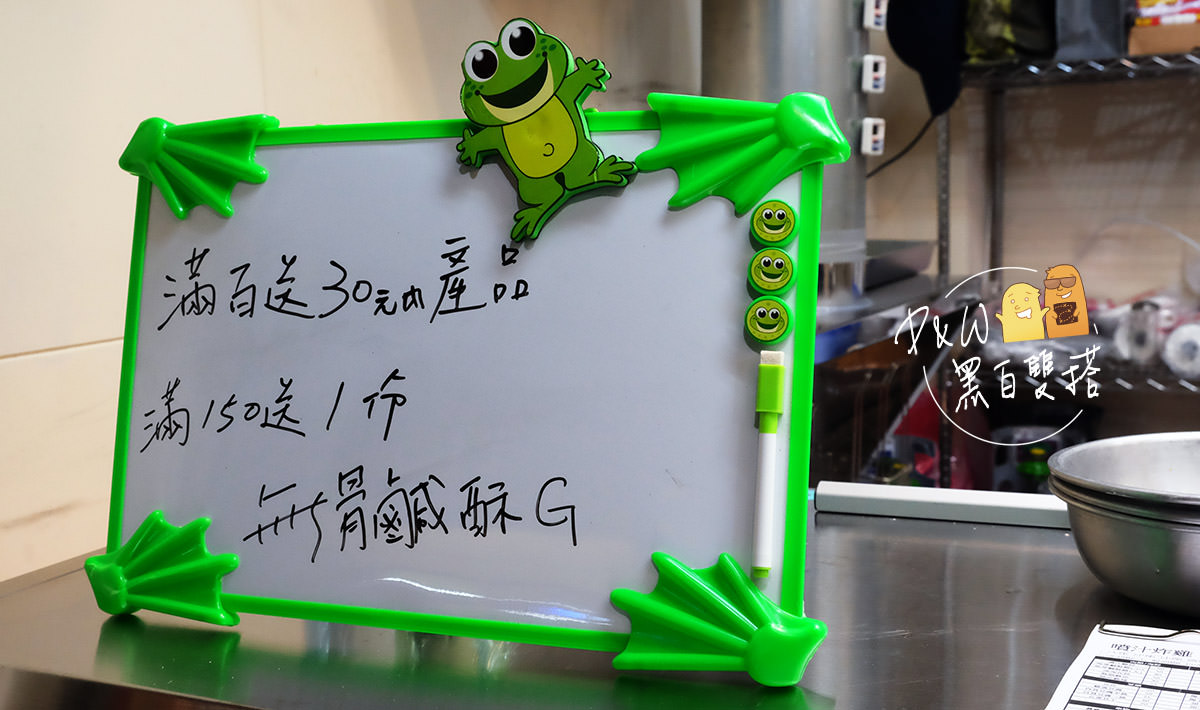 滿百送30元內產品
滿150送1份
無骨鹹酥G
P&W
黑白雙搭